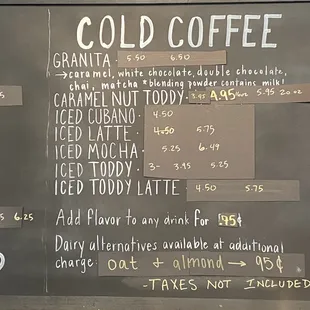 COLD COFFEE
GRANITA · 5.50 6.50
→ caramel, white chocolate, double chocolate,
chai, matcha *blending powder contains milk!
CARAMEL NUT TODDY · 3.95 4.95 5.95 20 oz
Iced CUBANO · 4.50
IceD LATTE · 4.50 5.75
IceD MOCHA · 5.25 6.49
IceD TODDY · 3- 3.95 5.25
IceD TODDY LATTE · 4.50 5.75
5 6.25
Add flavor to any drink for .95¢
Dairy alternatives available at additional
charge: oat + almond → 95¢
-TAXES NOT INCLUDED